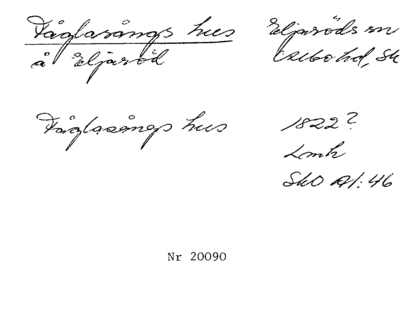 Fåglasångs hus
å Eljaröd
Eljaröds sn
Albo hd, Sk
Fåglasångs hus
1822?
Lmh
SkO A1:46
Nr 20090